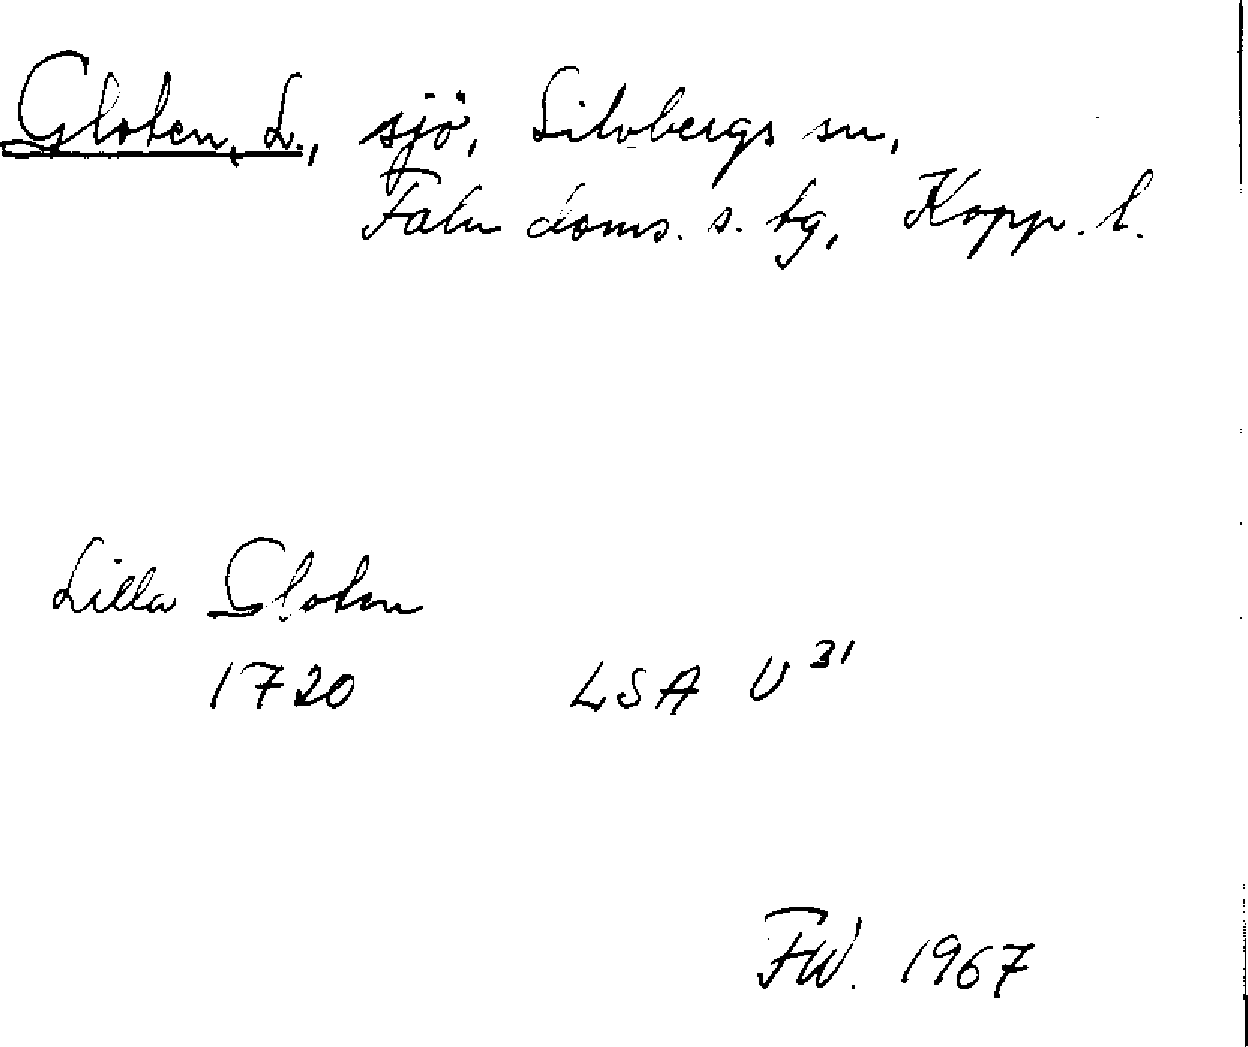 Gloten, L., sjö, Silvbergs sn,
Falu doms. s. tg, Kopp. l.
Lilla Gloten
1720 LSA U 31
FW. 1967